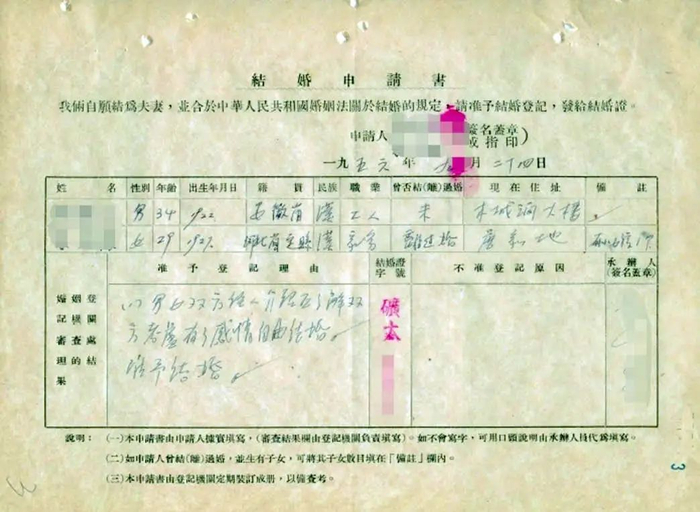 結婚申請書
我倆自願結爲夫妻，並合於中華人民共和國婚姻法關於結婚的規定，請准予結婚登記，發給結婚證。
申請人 簽名蓋章
或指印)
一九五六年 九月二十四日
姓名 性別 年齡 出生年月日 籍貫 民族 職業 曾否結(離)過婚 現在住址 備註
男 34 1922 安徽省 漢 工人 未 大樓
女 29 1927 漢 家务
婚姻登記機關審查處理的結果
准予登記理由 結婚證字號 不准登記原因 承辦人(簽名蓋章)
以男女双方经人介绍互了解双
方 有了感情自由结婚
准予结婚
礦太
說明：(一)本申請書由申請人據實填寫，(審查結果欄由登記機關負責填寫)。如不會寫字，可用口頭說明由承辦人員代爲填寫。
(二)如申請人曾結(離)過婚，並生有子女，可將其子女數目填在「備註」欄內。
(三)本申請書由登記機關定期裝訂成册，以備查考。
3